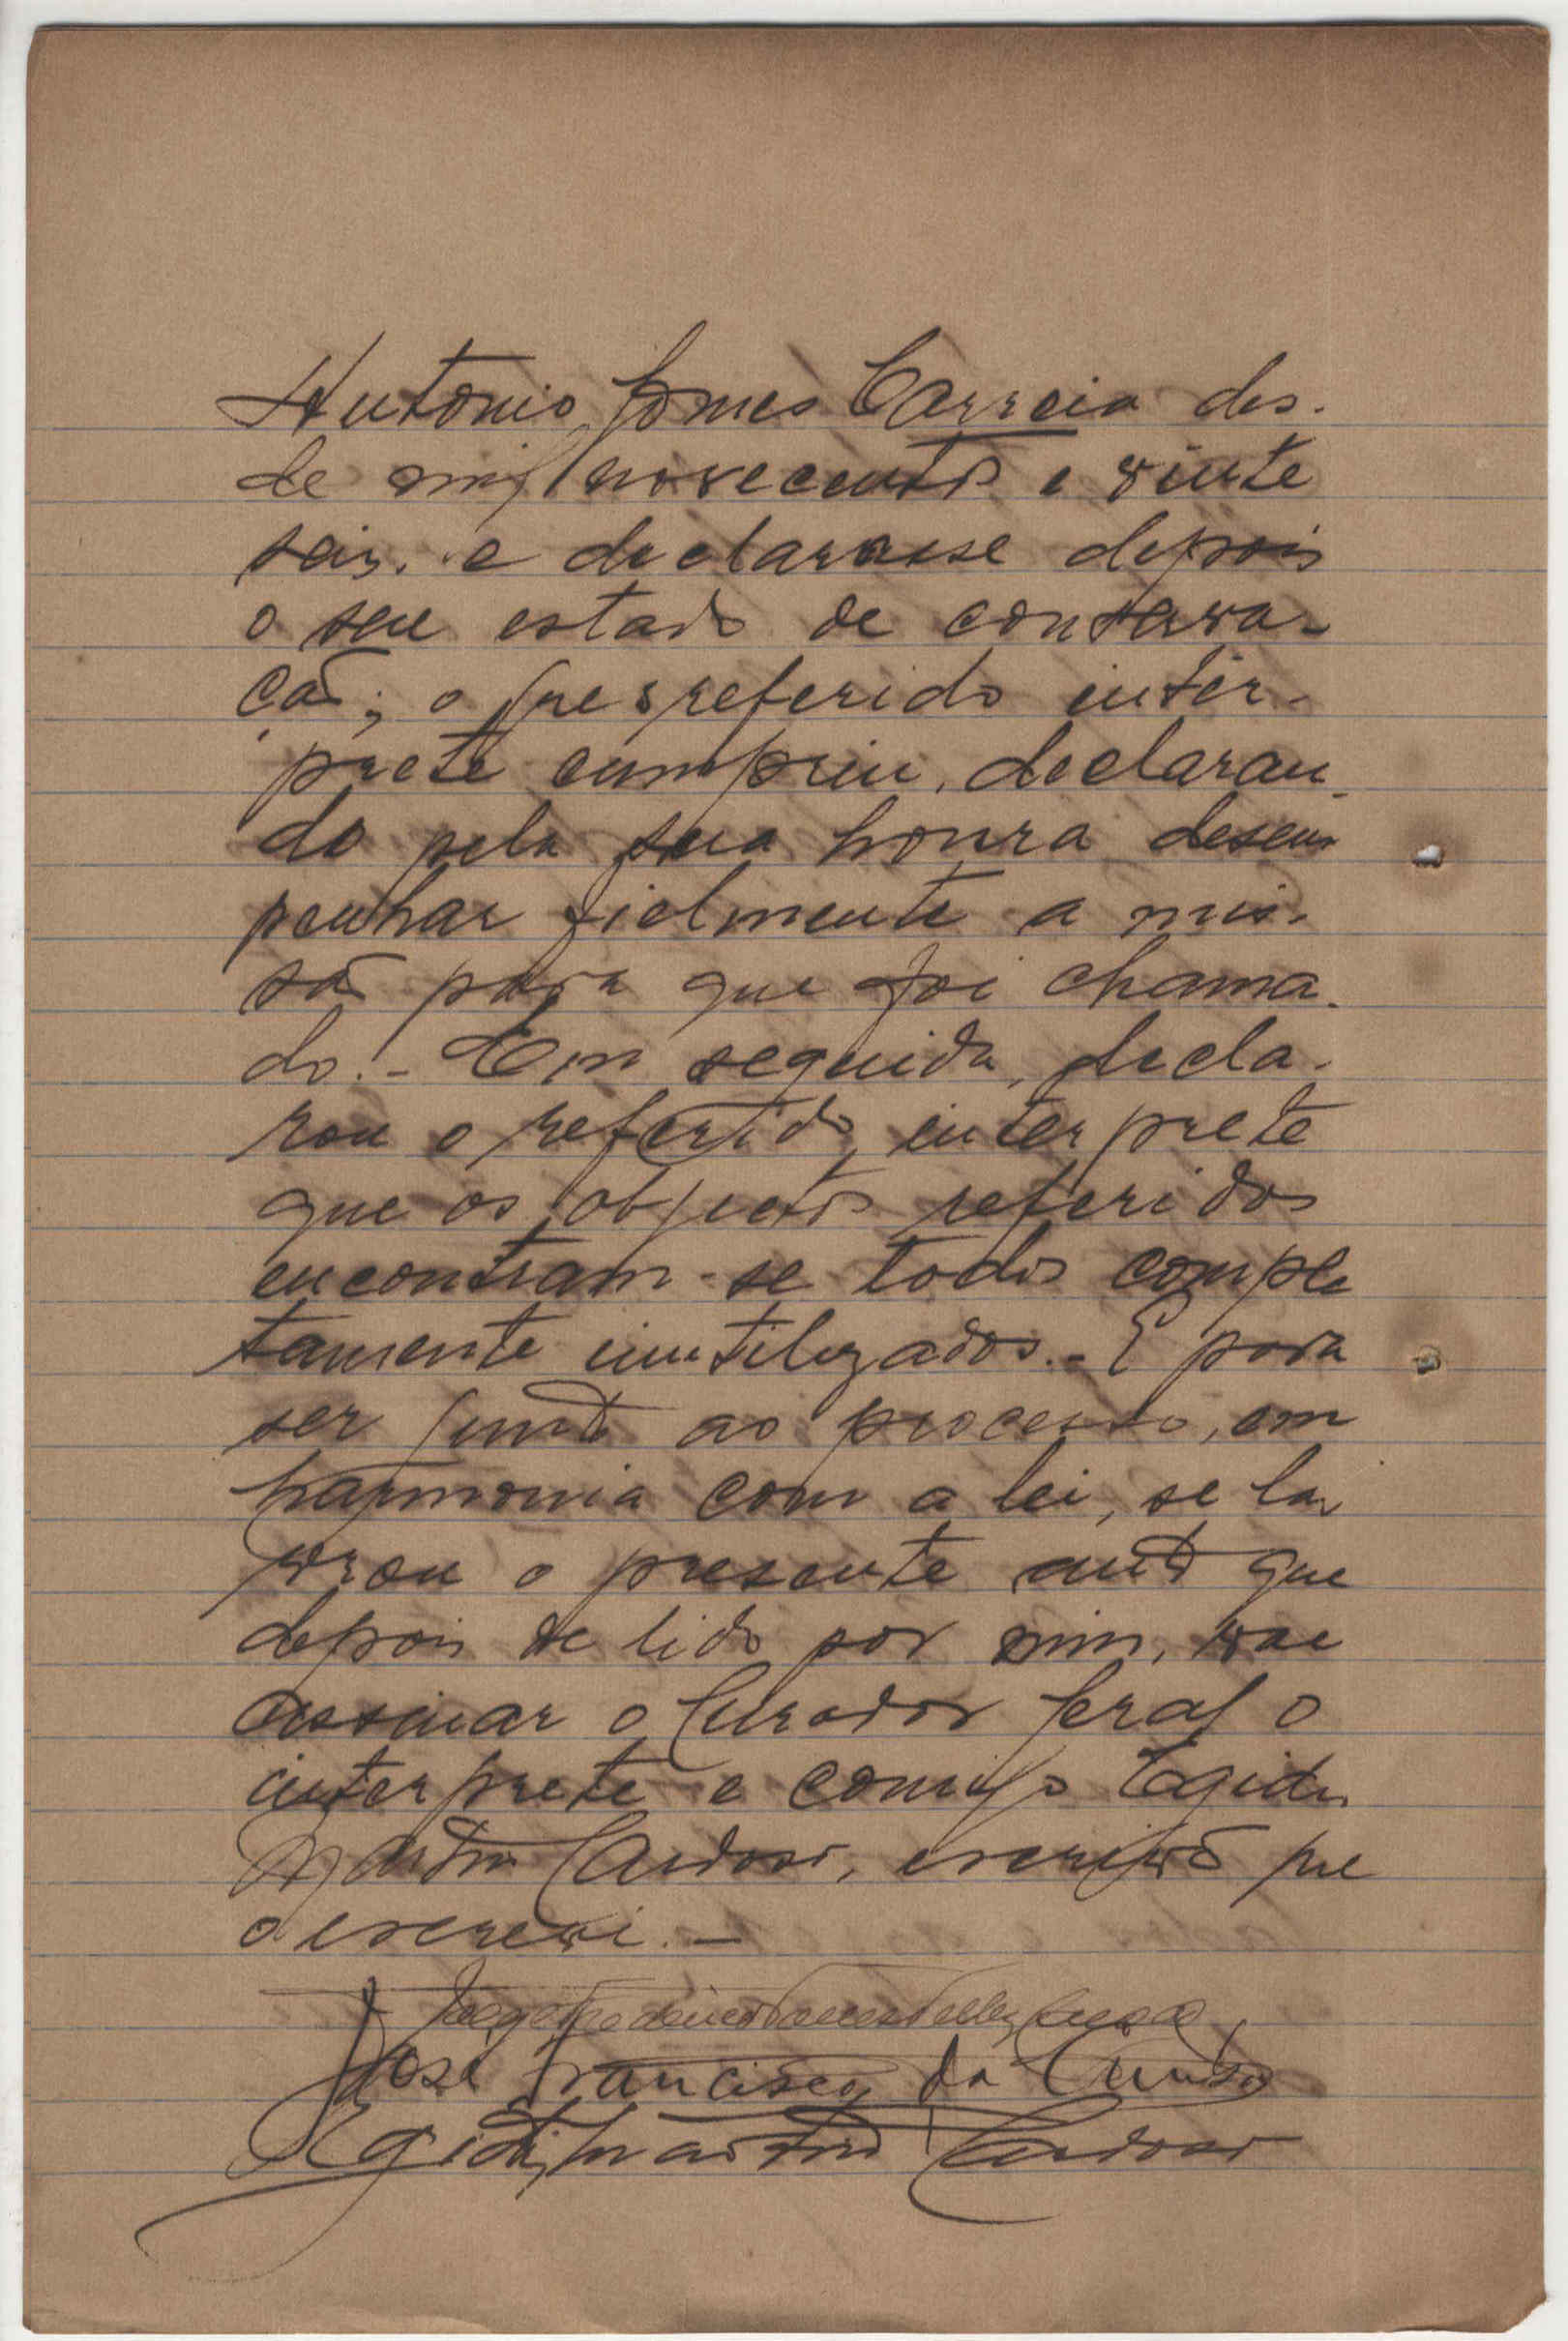 Antonio Gomes Correia des-
de mil novecentos e vinte
seis. e declarasse depois
o seu estado de conserva-
ção; o que o referido inter-
prete cumpriu, declaran-
do pela sua honra desem
penhar fielmente a mis-
são para que foi chama-
do. - Em seguida, decla-
rou o referido interprete
que os objectos referidos
encontram-se todos comple
tamente inutilizados. - E para
ser junto ao processo, em
harmonia com a lei, se la
vrou o presente auto que
depois de lido por mim, vae
assinar o Curador Geral o
interprete e comigo Egidio
Martins Cardoso, escrivão que
o escrevi. -
José Francisco da
Egidio Martins Cardoso